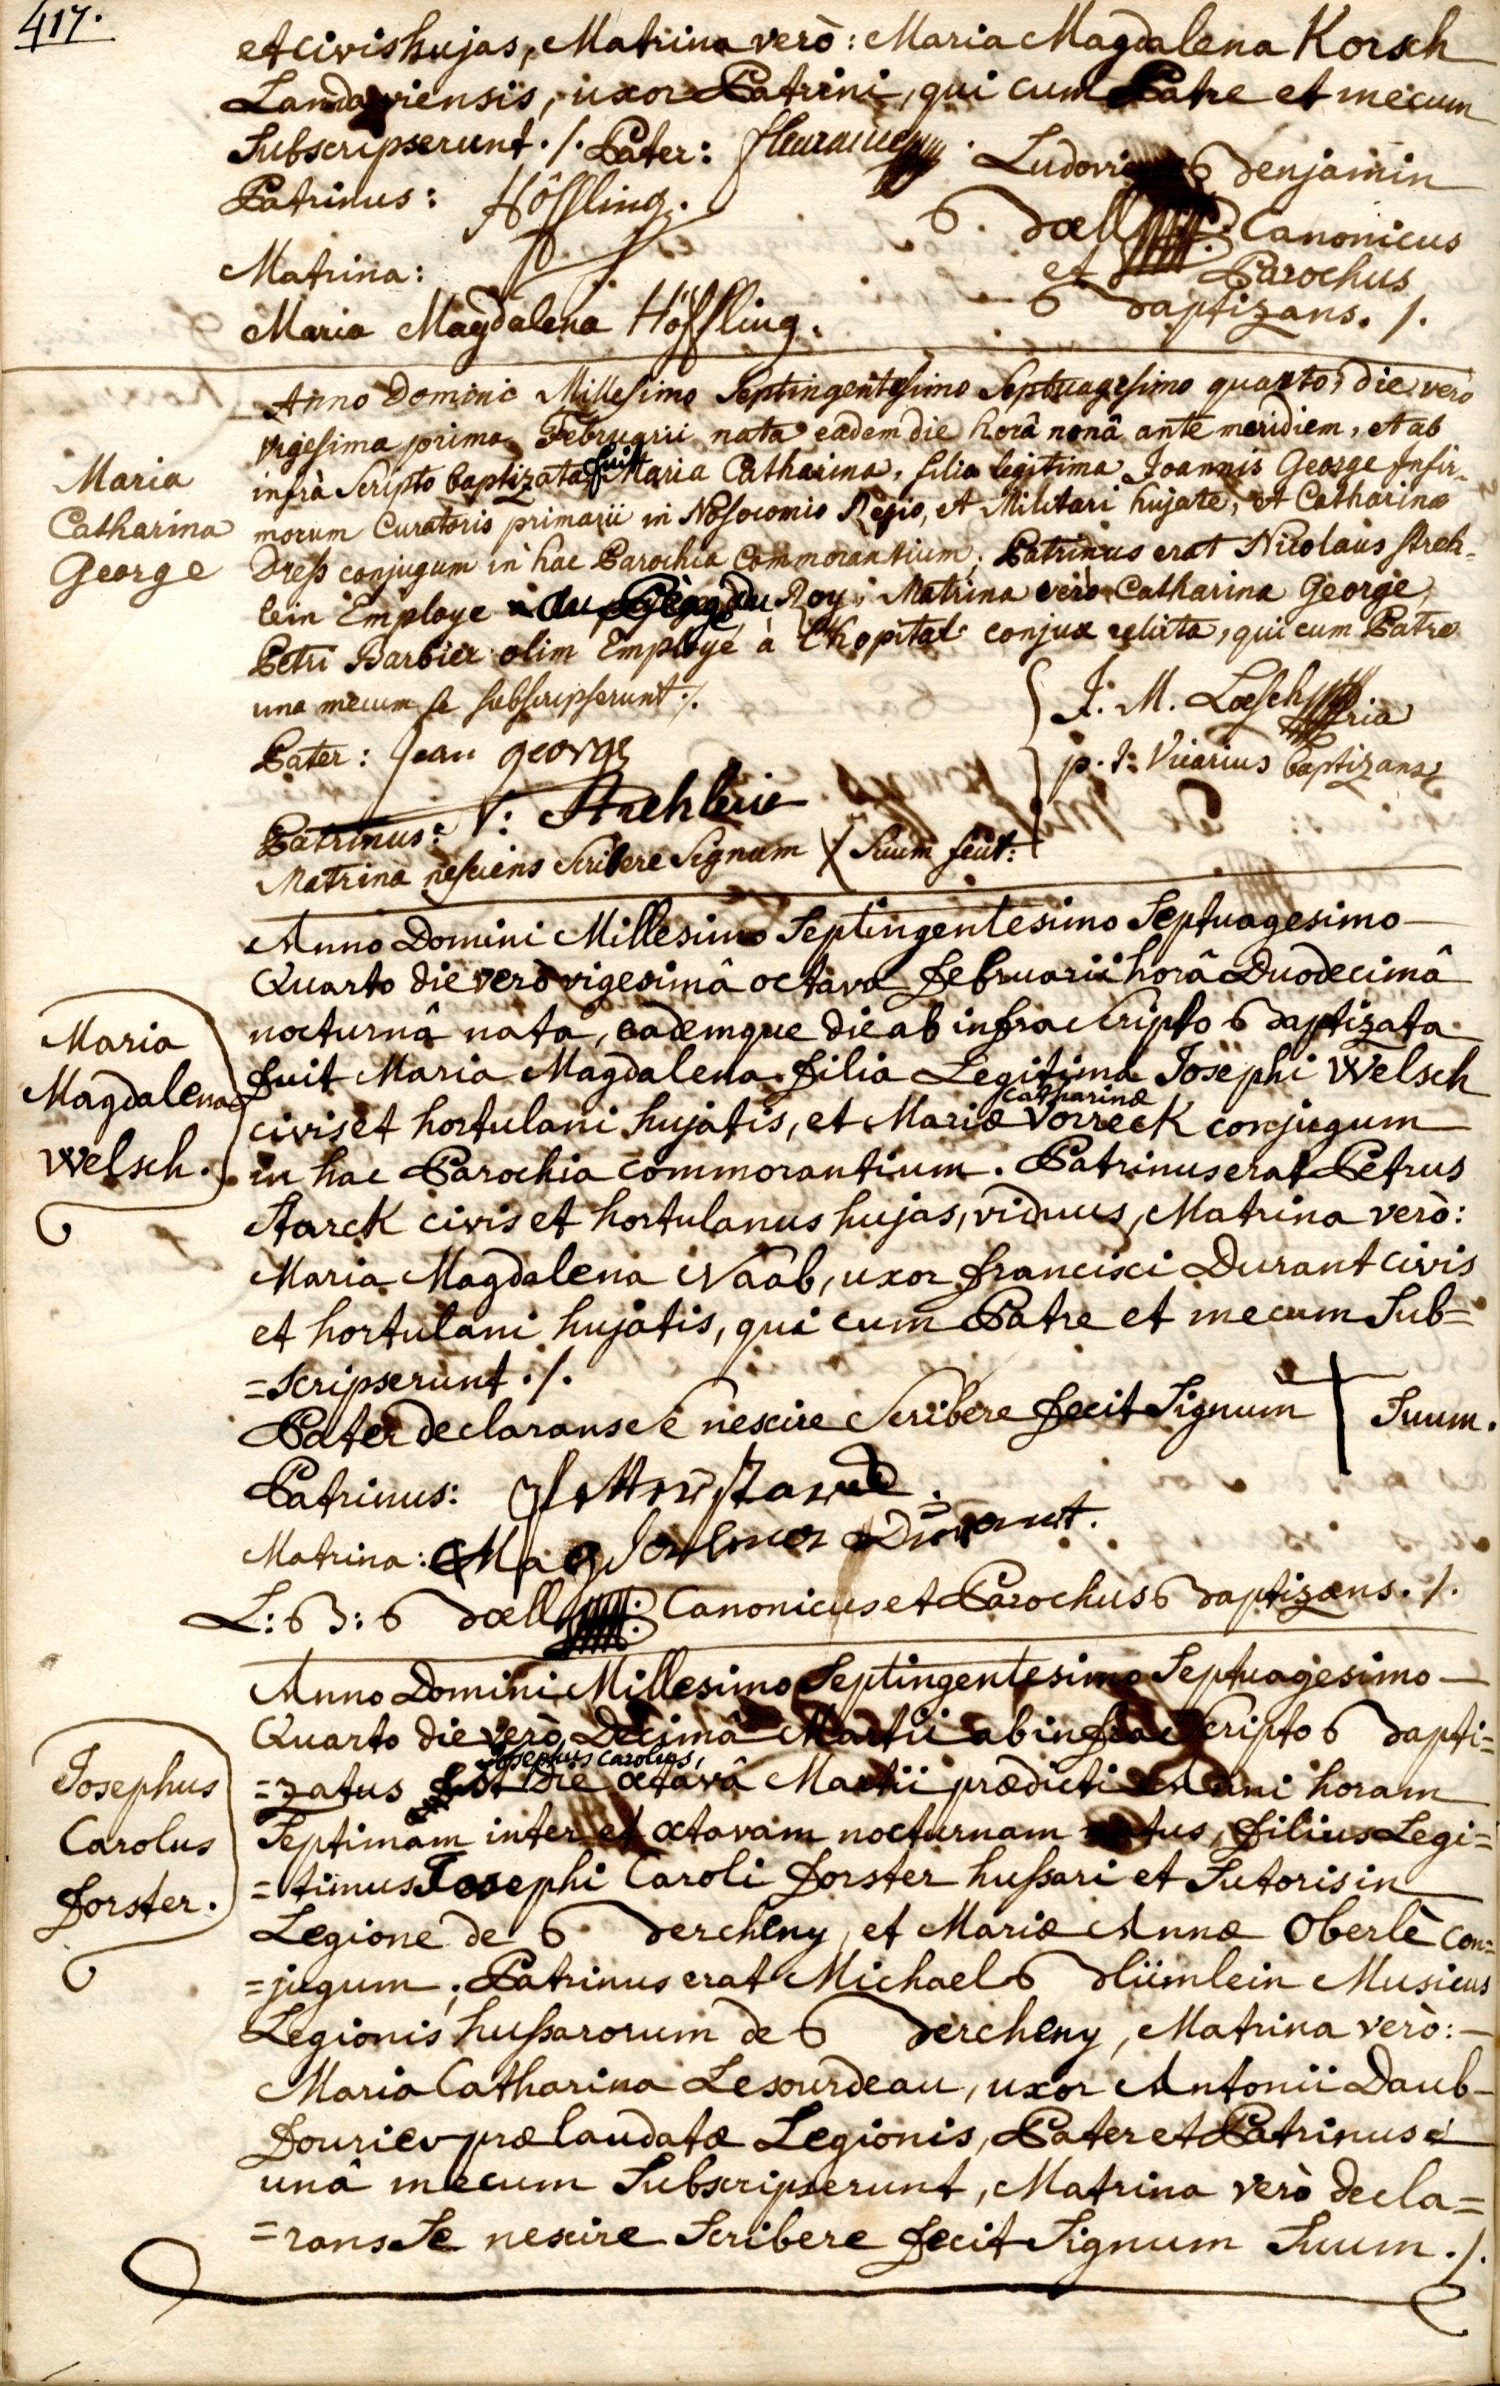 417.
et civis hujas, Matrina verò: Maria Magdalena Korsch
Landaviensis, uxor Patrini, qui cum Patre et mecum
Subscripserunt ./. Pater:
Patrinus: Höffling.
Matrina:
Maria Magdalena Höffling.
Ludovicus Benjamin
Boell Canonicus
et Parochus
Baptizans ./.
Maria
Catharina
George
Anno Domini Millesimo Septingentesimo Septuagesimo quarto, die vero
vigesima prima Februarii nata eâdem die horâ nonâ ante meridiem, et ab
infrà scripto baptizata fuit Maria Catharina, filia legitima Joannis George Infir-
morum Curatoris primarii in Nosocomio Regio, et Militari hujate, et Catharinæ
Dress conjugum in hac Parochia Commorantium. Patrinus erat Nicolaus Streh-
lein Employe du Roy, Matrina verò Catharina George
Petri Barbier olim Employé à l'hopital conjux relicta, qui cum Patre
una mecum se subscripserunt ./.
Pater: Jean george
Patrinus: N: Strehlein
Matrina nesciens scribere Signum X suum fecit:
J. M. Loesch
p. t. Vicarius baptizans
Maria
Magdalena
Welsch.
Anno Domini Millesimo Septingentesimo Septuagesimo
Quarto die verò vigesimâ octavâ februarii horâ Duodecimâ
nocturnâ nata, eademque die ab infra scripto Baptizata
fuit Maria Magdalena filia Legitima Josephi Welsch
civis et hortulani hujatis, et Mariæ Catharinæ Vorreck conjugum
in hac Parochia commorantium. Patrinus erat Petrus
Starck civis et hortulanus hujas, viduus, Matrina verò:
Maria Magdalena Naab, uxor francisci Durant civis
et hortulani hujatis, qui cum Patre et mecum Sub=
=scripserunt ./.
Pater declarans se nescire Scribere fecit Signum † Suum.
Patrinus:
Matrina: Magdalena Durant.
L: B: Boell Canonicus et Parochus Baptizans ./.
Josephus
Carolus
forster.
Anno Domini Millesimo Septingentesimo Septuagesimo
Quarto die verò Decimâ Martii ab infra Scripto Bapti=
=zatus fuit Josephus Carolus, Die octavâ Martii prædicti Anni horam
Septimam inter et octavam nocturnam natus, filius Legi=
=timus Josephi Caroli forster hussari et Sutoris in
Legione de Bercheny, et Mariæ Annæ Oberlè con=
=jugum; Patrinus erat Michael Blümlein Musicus
Legionis hussarorum de Bercheny, Matrina verò:
Maria Catharina Lesourdeau, uxor Antonii Daub
fourier prælaudatæ Legionis, Pater et Patrinus
unâ mecum Subscripserunt, Matrina verò decla=
=rans Se nescire Scribere fecit Signum Suum ./.